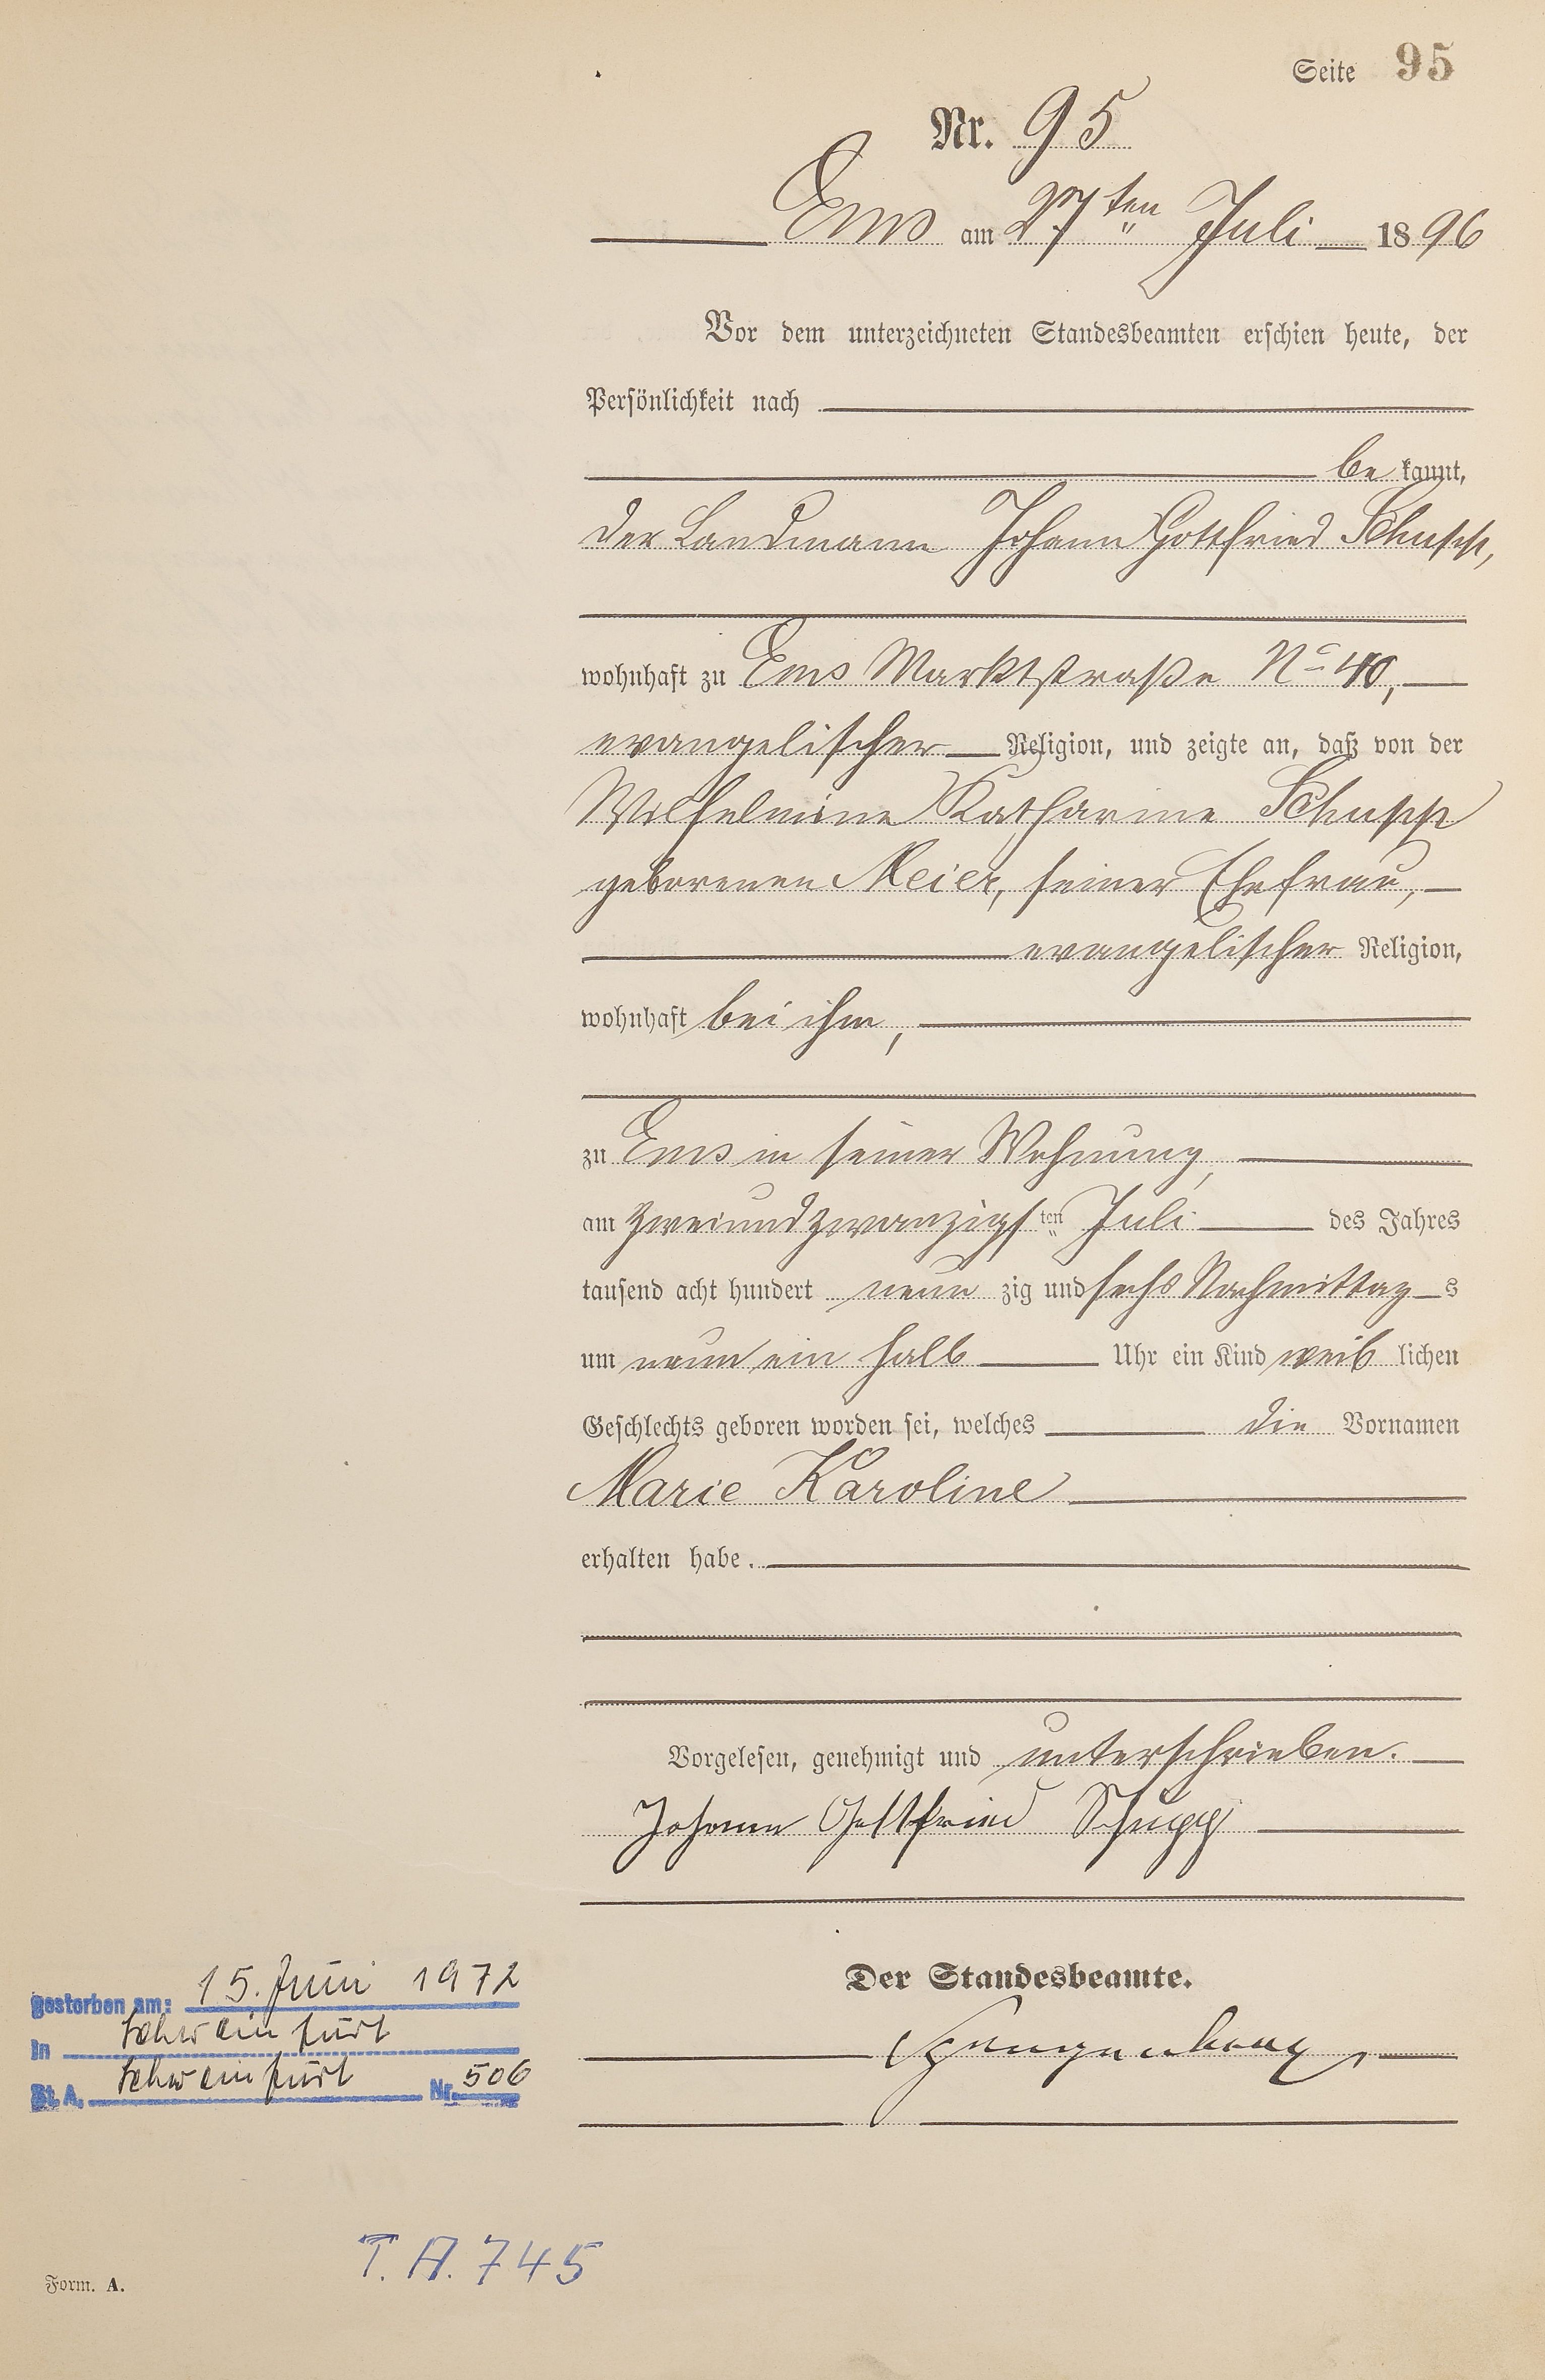 Seite 95
Nr. 95
Ems am 27ten Juli 1896
Vor dem unterzeichneten Standesbeamten erschien heute, der
Persönlichkeit nach
be kannt,
der Landmann Johann Gottfried Schupp,
wohnhaft zu Ems Marktstraße No 40,
evangelischer Religion, und zeigte an, daß von der
Wilhelmine Katharine Schupp
geborenen Meier, seiner Ehefrau,
evangelischer Religion,
wohnhaft bei ihm,
zu Ems in seiner Wohnung,
am zweiundzwanzigsten Juli des Jahres
tausend acht hundert neun zig und sechs Nachmittag s
um neun ein halb Uhr ein Kind weib lichen
Geschlechts geboren worden sei, welches die Vornamen
Marie Karoline
erhalten habe.
Vorgelesen, genehmigt und unterschrieben.
Johann Gottfried Schupp
Der Standesbeamte.
gestorben am: 15. Juni 1972
in Schweinfurt
St. A. Schweinfurt Nr. 506
T. A. 745
Form. A.